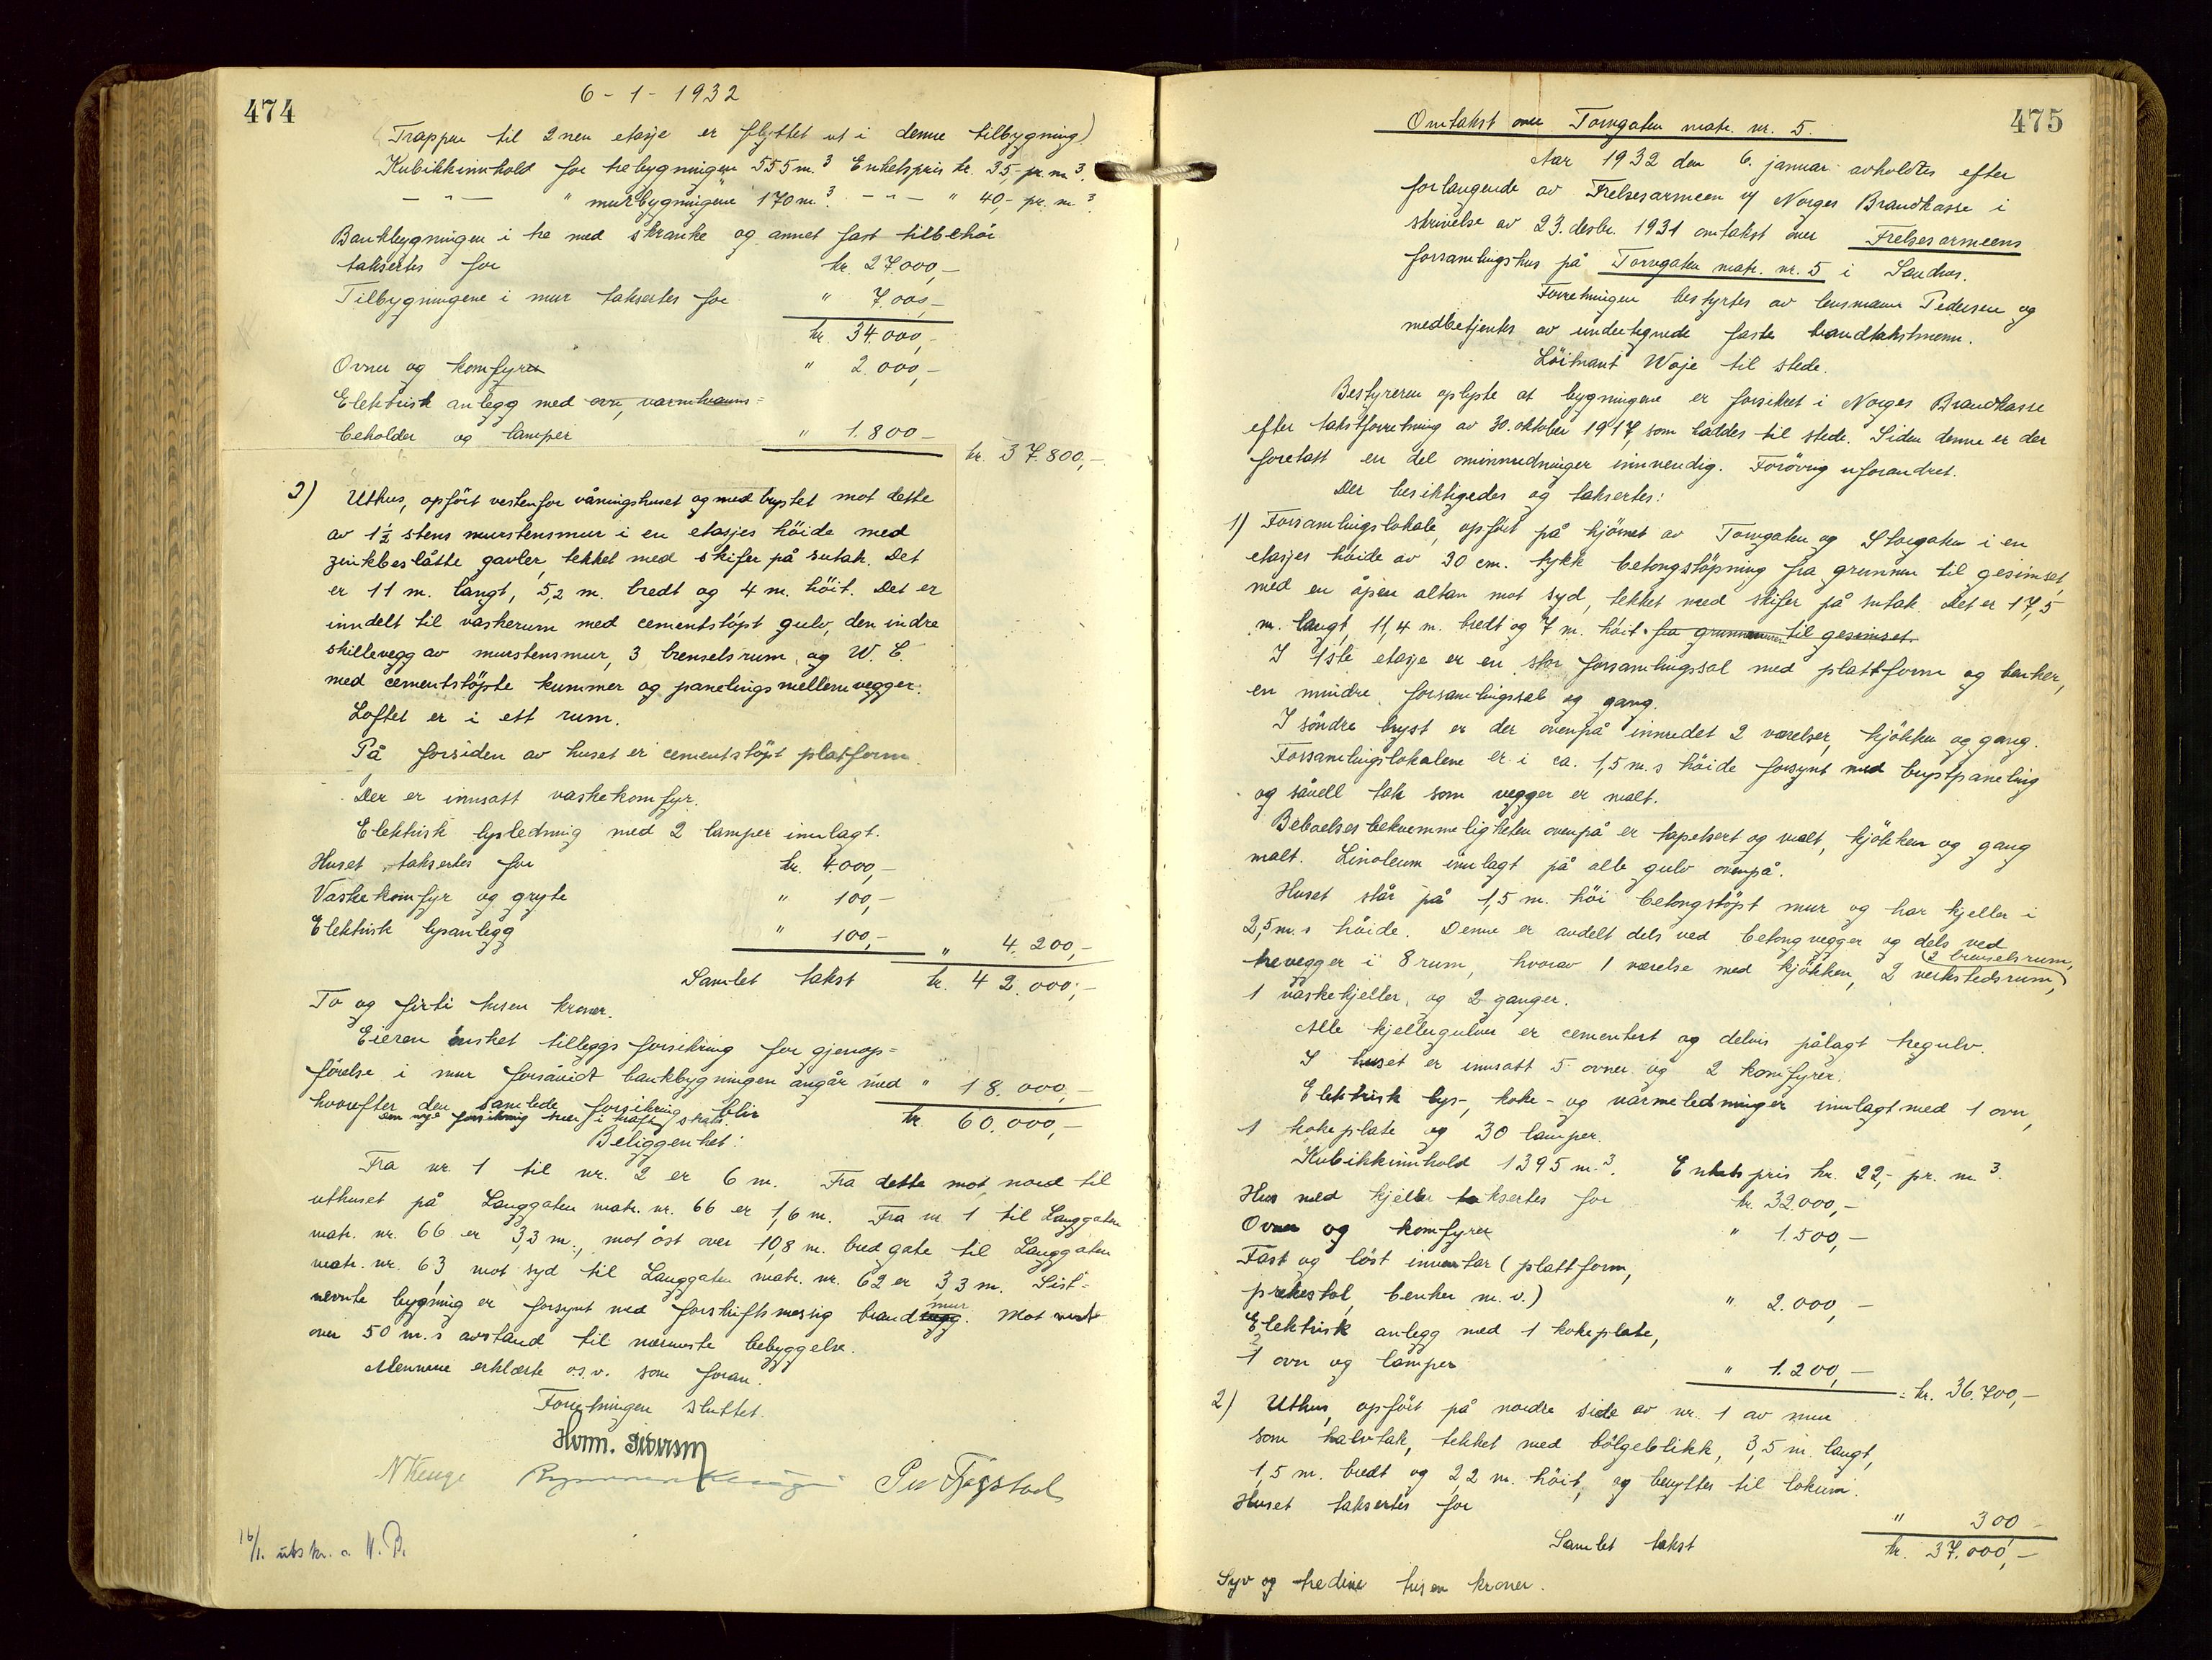 474
6-1-1932
Trappen til 2nen etasje er flyttet ut i denne tilbygning)
Kubikkinnhold for trebygningen 555 m.³ Enhetspris kr. 35,- pr. m³.
— " — " murbygningene 170 m.³ — " — " 40,- pr. m³.
Bankbygningen i tre med skranke og annet fast tilbehör
taksertes for kr. 27000,-
Tilbygningene i mur taksertes for " 7.000,-
kr. 34.000,-
Ovner og komfyrer " 2.000,-
Elektrisk anlegg med ovn, varmtvanns=
beholder og lamper " 1.800-
kr. 37.800,-
2) Uthus, opfört vestenfor våningshuset og med bryslet mot dette
av 1½ stens murstensmur i en etasjes höide med
zinkbeslåtte gavler, tekket med skifer på sutak. Det
er 11 m. langt, 5,2 m. bredt og 4 m. höit. Det er
inndelt til vaskerum med cementstöpt gulv, den indre
skillevegg av murstensmur, 3 brenselsrum, og W. C.
med cementstöpte kummer og panelingsmellemvegger.
Loftet er i ett rum.
På forsiden av huset er cementstöpt platform.
Der er innsatt vaskekomfyr.
Elektrisk lysledning med 2 lamper innlagt.
Huset taksertes for kr. 4.000,-
Vaskekomfyr og gryte " 100,-
Elektrisk lysanlegg " 100,- " 4.200,-
Samlet takst kr. 42.000,-
To og firti tusen kroner.
Eieren önsket tilleggsforsikring for gjenop=
förelse i mur forsåvidt bankbygningen angår med " 18.000,-
hvorefter den samlede forsikring blir kr. 60.000,-
om nye forsikring trer i kraft straks.
Beliggenhet:
Fra nr. 1 til nr. 2 er 6 m. Fra dette mot nord til
uthuset på Langgaten matr. nr. 66 er 1,6 m. Fra nr. 1 til Langgaten
matr. nr. 66 er 3,3 m., mot öst over 10,8 m. bred gate til Langgaten
matr. nr. 63, mot syd til Langgaten matr. nr. 62 er 3,3 m. Sist=
nevnte bygning er forsynt med forskriftsmessig brandvegg mur. Mot vest
over 50 m.s avstand til nærmeste bebyggelse.
Mennene erklærte o.s.v. som foran.
Forretningen sluttet.
Hvm. Siversen
N Kenge Per Fjogstad
16/1. utskr. a N. B.
475
Omtakst over Torvgaten matr. nr. 5.
Aar 1932 den 6. januar avholdtes efter
forlangende av Frelsesarmeen og Norges Brandkasse i
skrivelse av 23. desbr. 1931 omtakst over Frelsesarmeens
forsamlingshus på Torvgaten matr. nr. 5 i Sandnes.
Forretningen bestyrtes av lensmann Pedersen og
medbetjentes av undertegnede faste brandtakstmenn.
Löitnant Waje til stede.
Bestyreren oplyste at bygningene er forsikret i Norges Brandkasse
efter takstforretning av 30. oktober 1917, som haddes til stede. Siden denne er der
foretatt en del ominnredninger innvendig. Forövrig uforandret.
Der besiktigedes og taksertes:
1) Forsamlingslokale, opfört på hjörnet av Torvgaten og Storgaten i en
etasjes höide av 30 cm. tykk betongstöpning fra grunnen til gesimset,
med en åpen altan mot syd, tekket med skifer på sutak. Det er 17,5
m. langt, 11,4 m. bredt og 7 m. höit fra grunnmuren til gesimset.
I 1ste etasje er en stor forsamlingssal med plattform og benker,
en mindre forsamlingssal og gang.
I söndre bryst er der ovenpå innredet 2 værelser, kjökken og gang.
Forsamlingslokalene er i ca. 1,5 m.s höide forsynt med brystpaneling
og såvell tak som vegger er malt.
Beboelsesbekvemmeligheten ovenpå er tapetsert og malt, kjökken og gang
malt. Linoleum innlagt på alle gulv ovenpå.
Huset står på 1,5 m. höi betongstöpt mur og har kjeller i
2,5 m.s höide. Denne er avdelt dels ved betongvegger og dels ved
trevegger i 8 rum, hvorav 1 værelse med kjökken, 2 verkstedsrum, 2 brenselsrum,
1 vaskekjeller og 2 ganger.
Alle kjellergulver er cementert og delvis pålagt tregulv.
I huset er innsatt 5 ovner og 2 komfyrer.
Elektrisk lys-, koke- og varmeledninger innlagt med 1 ovn,
1 kokeplate og 30 lamper.
Kubikkinnhold 1395 m.³. Enhetspris kr. 22,- pr. m³.
Hus med kjeller taksertes for kr. 32.000,-
Ovner og komfyrer " 1.500,-
Fast og löst inventar (plattform,
prekestol, benker m.v.) " 2.000,-
Elektrisk anlegg med 1 kokeplate,
1 ovn og lamper " 1.200,- = kr. 36.700,-
2) Uthus, opfört på nordre side av nr. 1 av mur
som halvtak, tekket med bölgeblikk, 3,5 m. langt,
1,5 m. bredt og 2,2 m. höit, og benyttes til lokum.
Huset taksertes for " 300-
Samlet takst kr. 37.000,-
Syv og tredive tusen kroner.